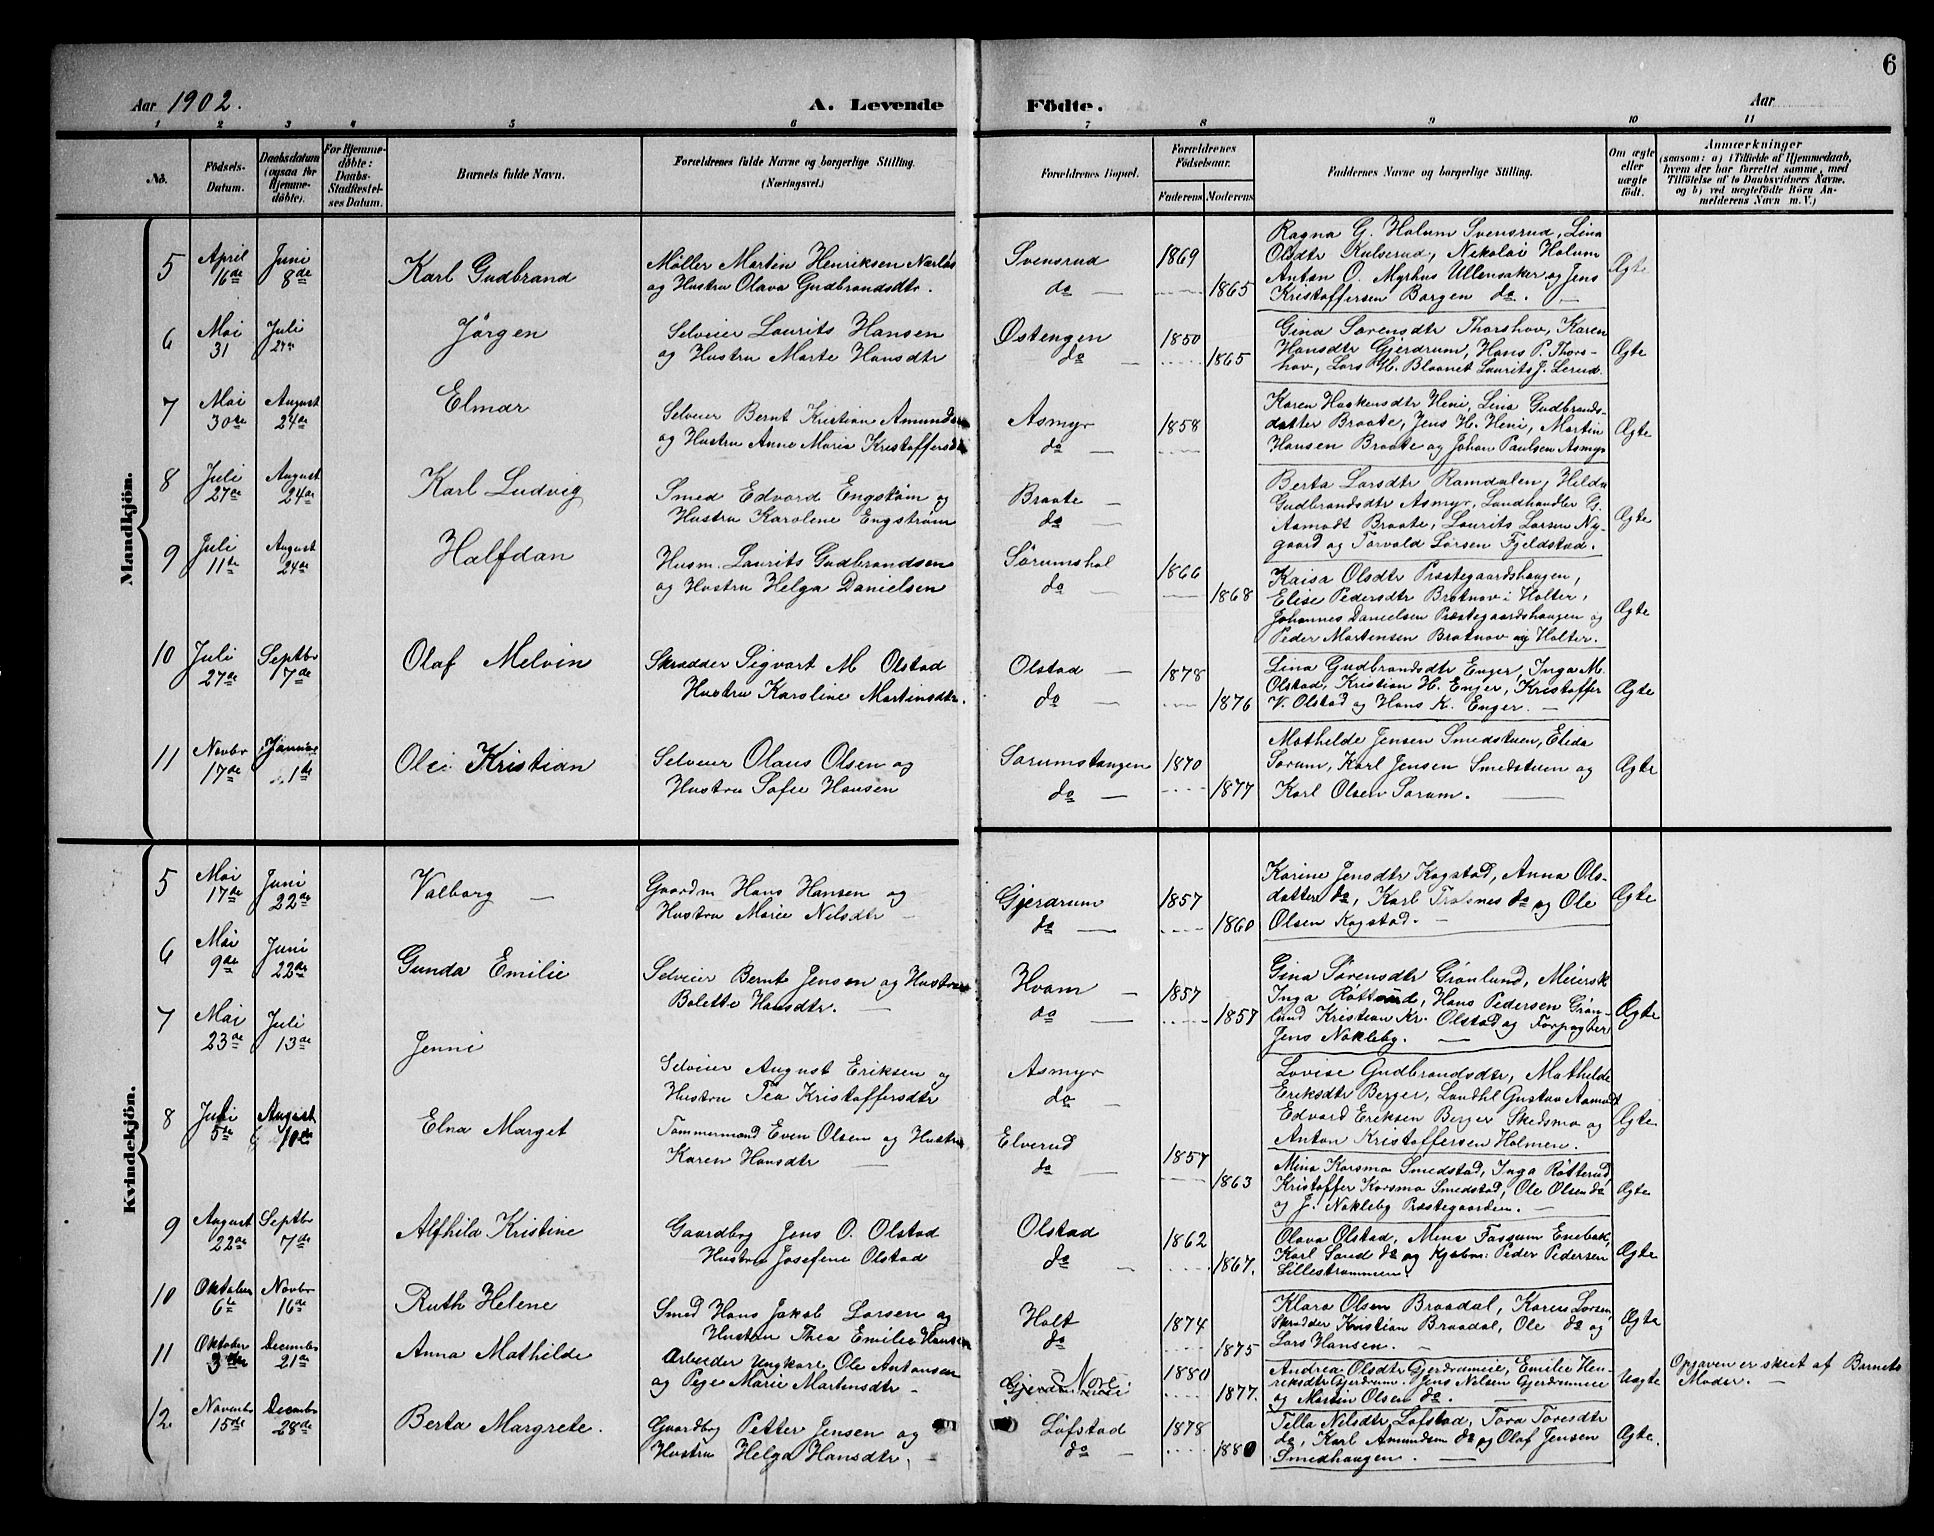 6
Aar 1902.
A. Levende
Födte.
Aar
1 2 3 4 5 6 7 8 9 10 11
No.
Födsels-
Datum.
Daabsdatum
(ogsaa for
Hjemme-
döbte).
For Hjemme-
döbte:
Daabs-
Stadfæstel-
ses Datum.
Barnets fulde Navn.
Forældrenes fulde Navne og borgerlige Stilling.
(Næringsvei.)
Forældrenes Bopæl.
Forældrenes
Födselsaar.
Faderens Moderens
Faddernes Navne og borgerlige Stilling.
Om ægte
eller
uægte
födt.
Anmærkninger
(saasom: a) i Tilfælde af Hjemmedaab,
hvem der har forrettet samme, med
Tilföielse af to Daabsvidners Navne,
og b) ved uægtefödte Börn An-
melderens Navn m. V.)
Mandkjön.
5
April
16de
Juni
8de
Karl Gudbrand
Møller Martin Henriksen
og Hustru Olava Gudbrandsdtr.
Svensrud
do
1869
1865
Ragna G. Holum Svensrud, Lina
Olsdtr Kulverud, Nikolai Holum
Anton O. Myrhus Ullensaker og Jens
Kristoffersen Borgen do.
Ægte
6
Mai
31
Juli
Jørgen
Selveier Laurits Hansen
og Hustru Marte Hansdtr
Østengen
do
1850
1865
Gina Sørensdtr Thorshov, Karen
Hansdtr Gjerdrum, Hans P. Thors-
hov, Lars H. Blaanet Laurits J. Lerud.
Ægte
7
Mai
30te
August
24de
Elmar
Selveier Bernt Kristian Amundsen
og Hustru Anne Maria Kristoffersdtr
Asmyr
do
1858
Karen Haskensdtr Heni, Lina Gudbrands-
datter Braate, Jens H. Heni, Martin
Hansen Braate og Johan Paulsen Asmyr
Ægte
8
Juli
27de
August
24de
Karl Ludvig
Smed Edvard Engstøm og
Hustru Karolene Engstrøm
Braate
do
Berta Larsdtr Ramdalen, Hilda
Gudbrandsdtr Asmyr, Landhandler G.
Aamodt Braate, Laurits Larsen Ny-
gaard og Torvald Larsen Fjeldstad.
Ægte
9
Juli
11te
August
24de
Halfdan
Husm. Laurits Gudbrandsen
og Hustru Helga Danielsen
Sørumshol
do
1866
1868
Kaisa Olsdtr Præstegaardshaugen,
Elise Pedersdtr Bratnov i Holter,
Johannes Danielsen Præstegaardshaugen og
Peder Martensen Bratnov Holter.
Ægte
10
Juli
27de
Septbr
7de
Olaf Melvin
Skrædder Sigvart M Olstad
Hustru Karoline Martinsdtr.
Olstad
do
1878
1876
Lina Gudbrandsdtr Enger, Inga M.
Olstad, Kristian H. Enger, Kristoffer
V. Olstad og Hans K. Enger.
Ægte
11
Novbr
17de
1de
Olei Kristian
Selveier Olaus Olsen og
Hustru Sofie Hansen
Sørumstangen
do
1870
1877
Mathilde Jensen Smedstuen, Elida
Sørum, Karl Jensen Smedstuen og
Karl Olsen Sørum.
Ægte
Kvindekjön.
5
Mai
17de
Juni
22de
Valborg
Gaardm Hans Hansen og
Hustru Marie Nilsdtr
Gjerdrum
do
1857
1860
Karine Jensdtr Kogstad, Anna Ols-
datter do, Karl do og Ole
Olsen Kogstad.
Ægte
6
Mai
9de
Juni
22de
Gunda Emilie
Selveier Bernt Jensen og Hustru
Bolette Hansdtr.
Hvam
do
1857
1857
Gina Sørensdtr Grønlund, Meiersk
Inga Røtterud, Hans Pedersen Grøn-
lund Kristian Kr. Olstad og Forpagter
Jens Nokleby.
Ægte
7
Mai
23de
Juli
13de
Jenni
Selveier August Eriksen og
Hustru Tea Kristoffersdtr
Asmyr
do
Lovise Gudbrandsdtr, Mathilde
Eriksdtr Berger, Landhl Gustav Aamodt
Edvard Eriksen Berger Skedsmo og
Anton Kristoffersen Holmen.
Ægte
8
Juli
5te
August
10de
Elna Marget
Tømmermand Even Olsen og Hustru
Karen Hansdtr
Elverud
do
1857
1863
Mina Korsmo Smedstad, Inga Røtterud,
Kristoffer Korsmo Smedstad, Ole Olsen do
og J. Nokleby Præstegaarden.
Ægte
9
August
22de
Septbr
7de
Alfhild Kristine
Gaardbrg Jens O. Olstad
Hustru Josefine Olstad
Olstad
do
1862
1867.
Olava Olstad, Mina Fossum Enebak,
Karl Sand do og Kjøbm: Peder Pedersen
Lillestrømmen.
Ægte
10
Oktober
6te
Novbr
16de
Ruth Helene
Smed Hans Jakob Larsen og
Hustru Thea Emilie Hansen
Holt
do
1874
1875
Klara Olsen Braadal, Karen Larsen
Skrædder Kristian Braadal, Ole do og
Lars Hansen.
Ægte
11
Oktober
3de
Decembr
21de
Anna Mathilde
Arbeider Ungkarl Ole Antonsen
og Pige Marie Martensdtr
Gjerdrum
1880
1877.
Andrea Olsdtr Gjerdrumeie, Emilie Hen-
riksdtr Gjerdrum. Jens Nilsen Gjerdrumeie
og Martin Olsen do.
Uægte
Opgaven er skeet af Barnets
Moder.
12
Novembr
15de
Decembr
28de
Berta Margrete.
Gaardbrg Petter Jensen og
Hustru Helga Hansdtr.
Løfstad
do
1878
1880
Tella Nilsdtr Løfstad, Tora Toresdtr
do, Karl Amundsen do og Olaf Jensen
Smedhaugen.
Ægte.